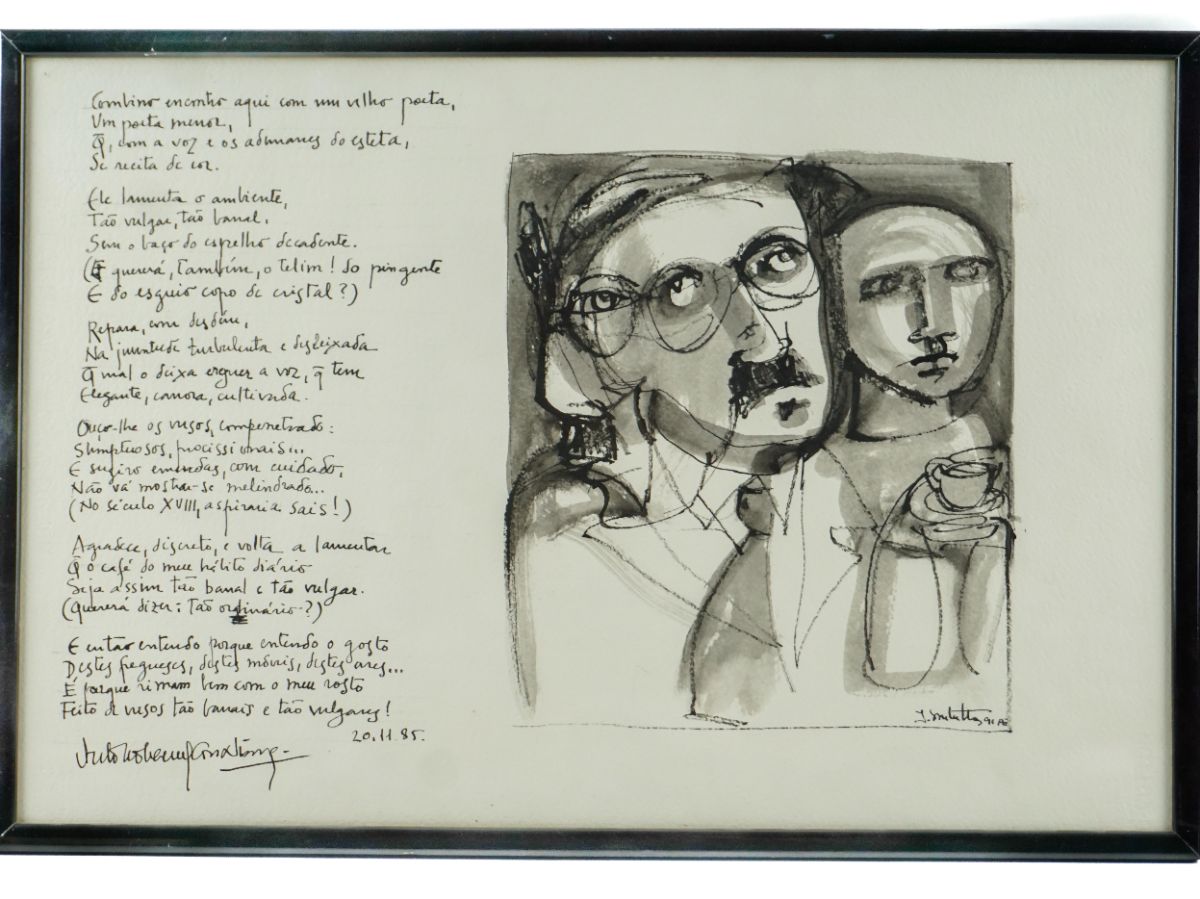 Combino encontro aqui com um velho poeta,
Um poeta menor,
Q̃, com a voz e os ademanes do esteta,
Se recita de cor.
Ele lamenta o ambiente,
Tão vulgar, tão banal,
Sem o baço do espelho decadente.
(E quererá, também, o telim! do pingente
E do esguio copo de cristal?)
Repara, com desdém,
Na juventude turbulenta e desleixada
Q̃ mal o deixa erguer a voz, q̃ tem
Elegante, canora, cultivada.
Ouço-lhe os versos, compenetrado:
Sumptuosos, processionais...
E sugiro emendas, com cuidado,
Não vá mostrar-se melindrado...
(No século XVIII, aspiraria sais!)
Agradece, discreto, e volta a lamentar
Q̃ o café do meu hálito diário
Seja assim tão banal e tão vulgar.
(Quererá dizer: tão ordinário?)
E então entendo porque entendo o gosto
Destes fregueses, destes móveis, destes ares...
É porque rimam bem com o meu rosto
Feito de versos tão banais e tão vulgares!
20.11.85.